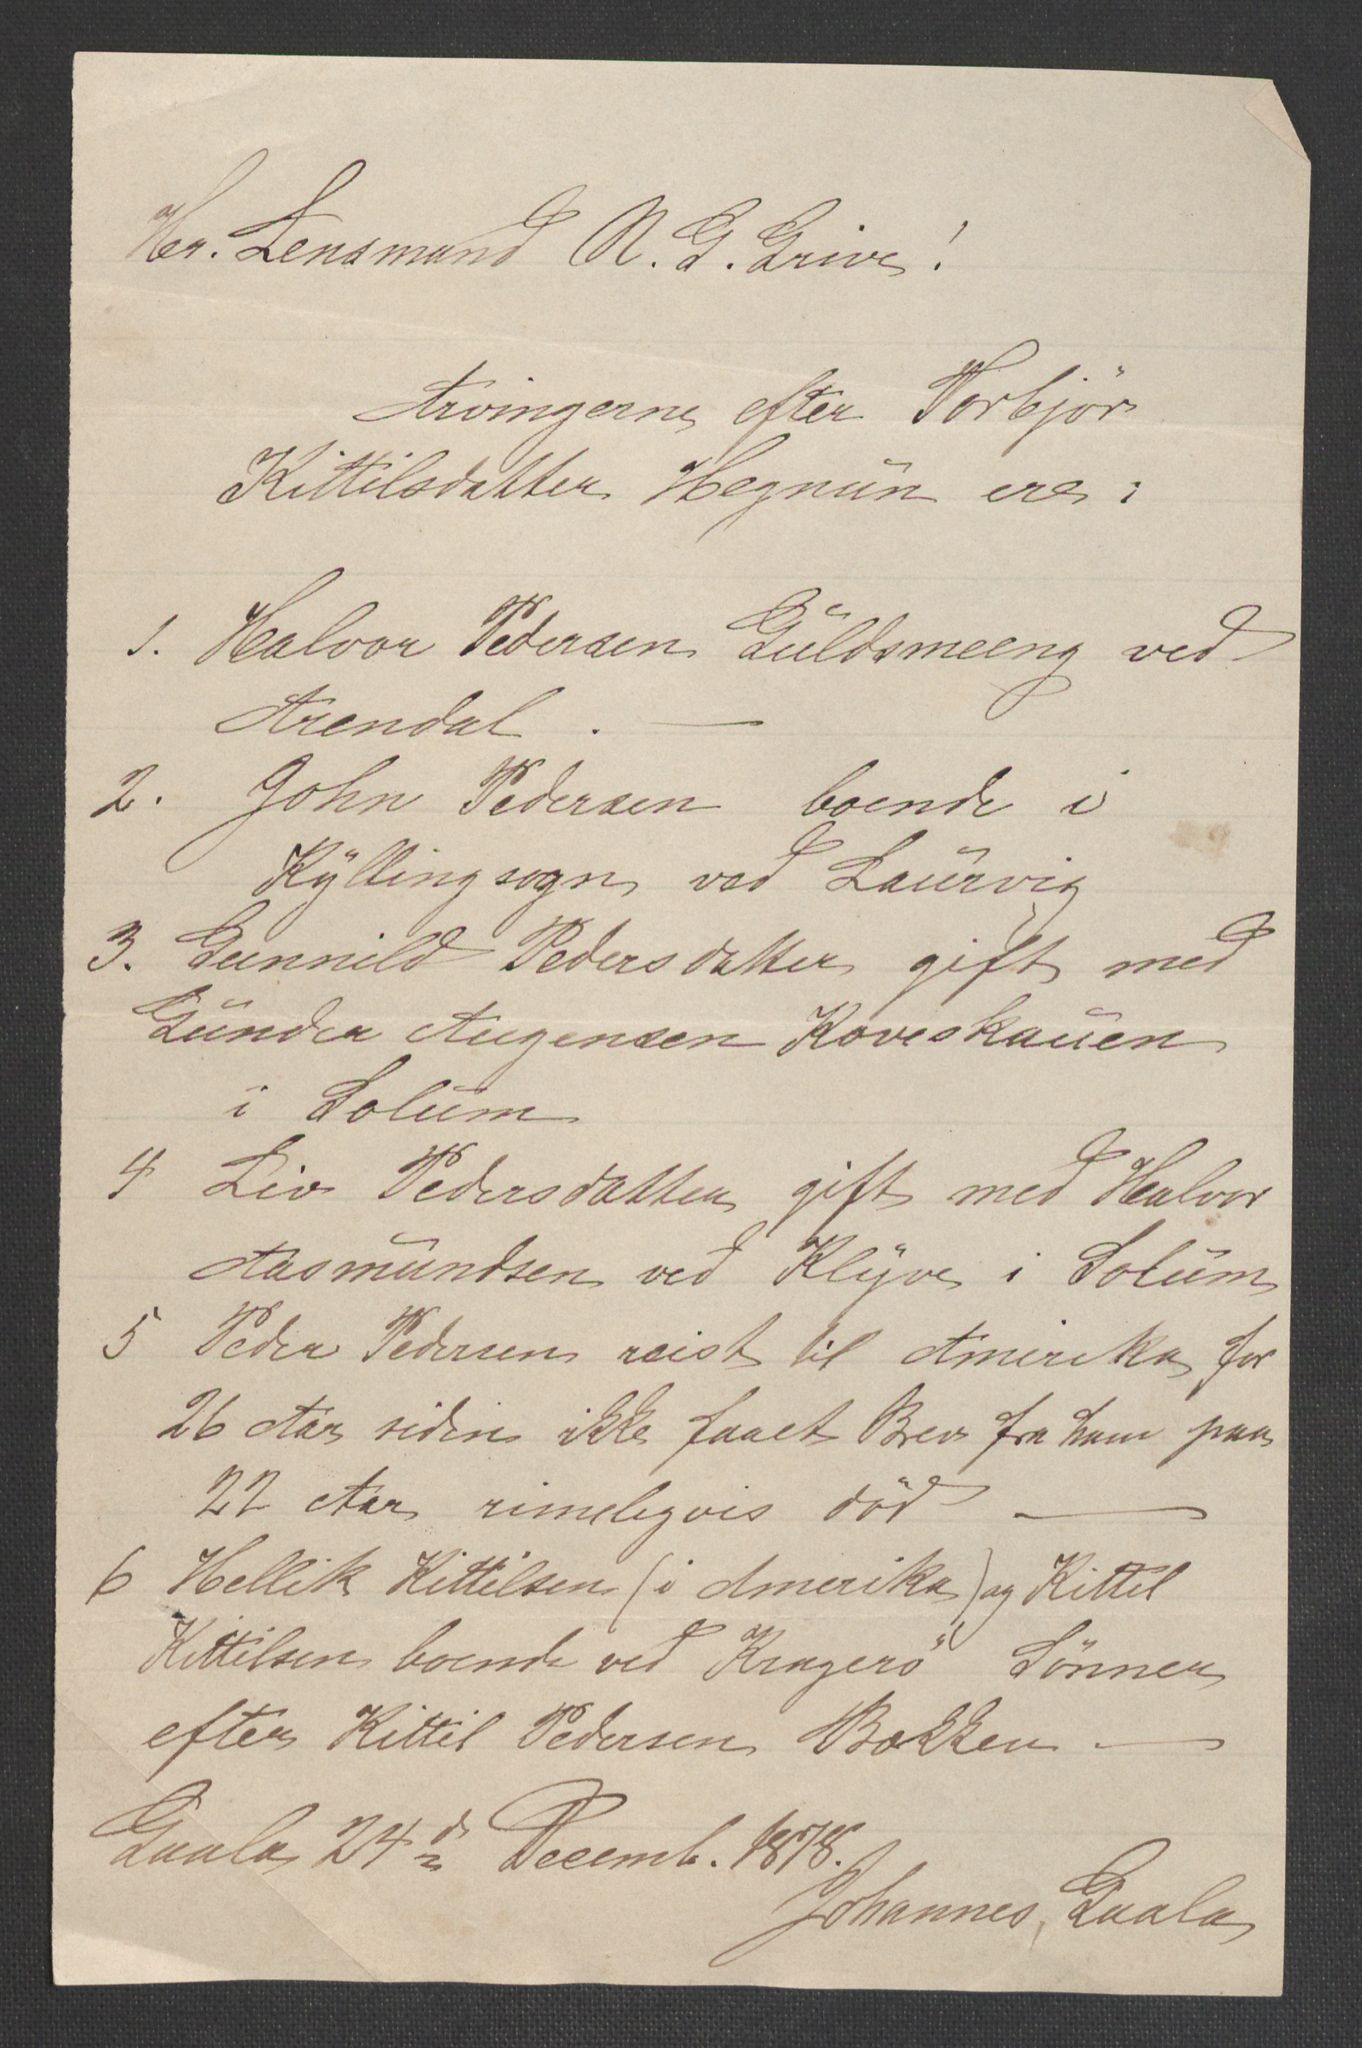 Hr. Lensmand N. G. Grive!
Arvingerne efter Torbjör
Kittilsdatter Hegnün ere:
1. Halvor Pedersen Güldsmeeng ved
Arendal. —
2. John Pedersen boende i
Kÿllingsogn ved Laürvig
3. Gunnild Pedersdatter gift med
Günder Augensen Koveskaüen
i Solüm
4 Liv Pedersdatter gift med Halvor
Aasmündsen ved Klÿve i Solüm
5 Peder Pedersen reist til Amerika for
26 Aar siden ikke faaet Brev fra ham paa
22 Aar rimeligvis död —
6 Hellik Kittilsen (i Amerika) og Kittel
Kittilsen boende ved Kragerö Sönner
efter Kittil Pedersen Bakken —
Gaala 24de Decemb. 1878.
Johannes Gaala